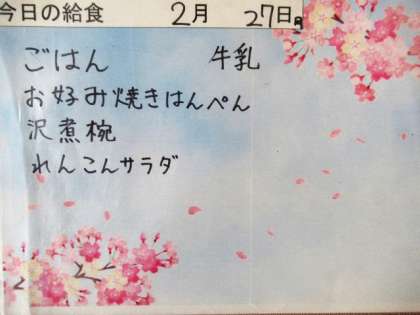 今日の給食 2月 27日
ごはん 牛乳
お好み焼きはんぺん
沢煮椀
れんこんサラダ